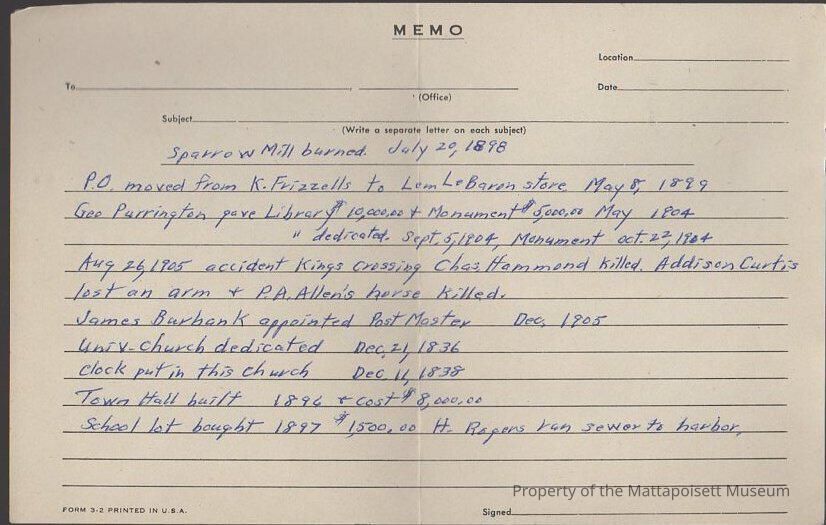 MEMO
Location
To
Date
(Office)
Subject
(Write a separate letter on each subject)
Sparrow Mill burned. July 20, 1898
P.O. moved from K. Frizzells to Lem LeBaron store May 8, 1899
Geo Purrington gave Library $10,000.00 + Monument $5,000.00 May 1904
" dedicated. Sept. 5, 1904, Monument oct. 22, 1904
Aug 26, 1905 accident Kings crossing Chas. Hammond killed. Addison Curtis
lost an arm + P.A. Allen's horse killed.
James Burbank appointed Post Master Dec, 1905
Univ-Church dedicated Dec, 21, 1836
Clock put in this church Dec, 11, 1838
Town Hall built 1896 + cost $8,000.00
School lot bought 1897 $1,500.00 H. Rogers ran sewer to harbor,
Property of the Mattapoisett Museum
FORM 3-2 PRINTED IN U.S.A.
Signed